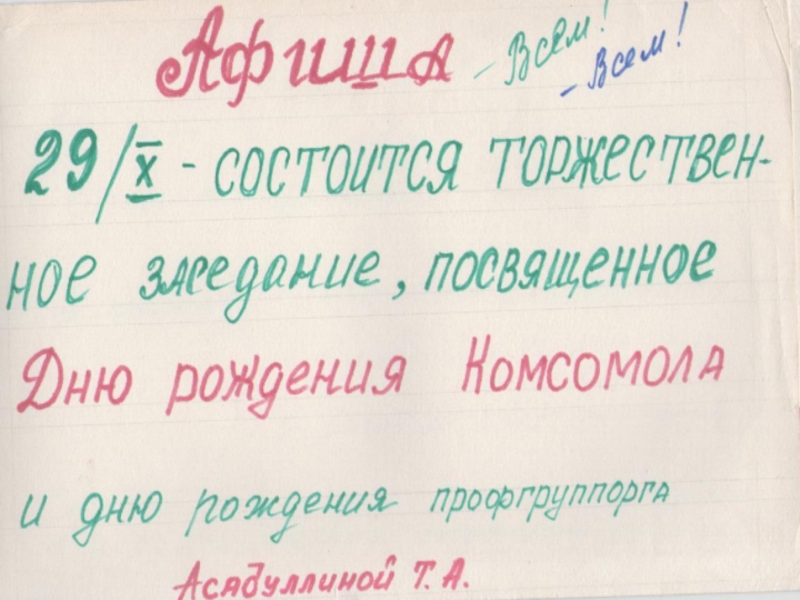 Афиша - Всем!
- Всем!
29/X - состоится торжествен-
ное заседание, посвященное
Дню рождения Комсомола
и дню рождения профгруппорга
Асадуллиной Т. А.